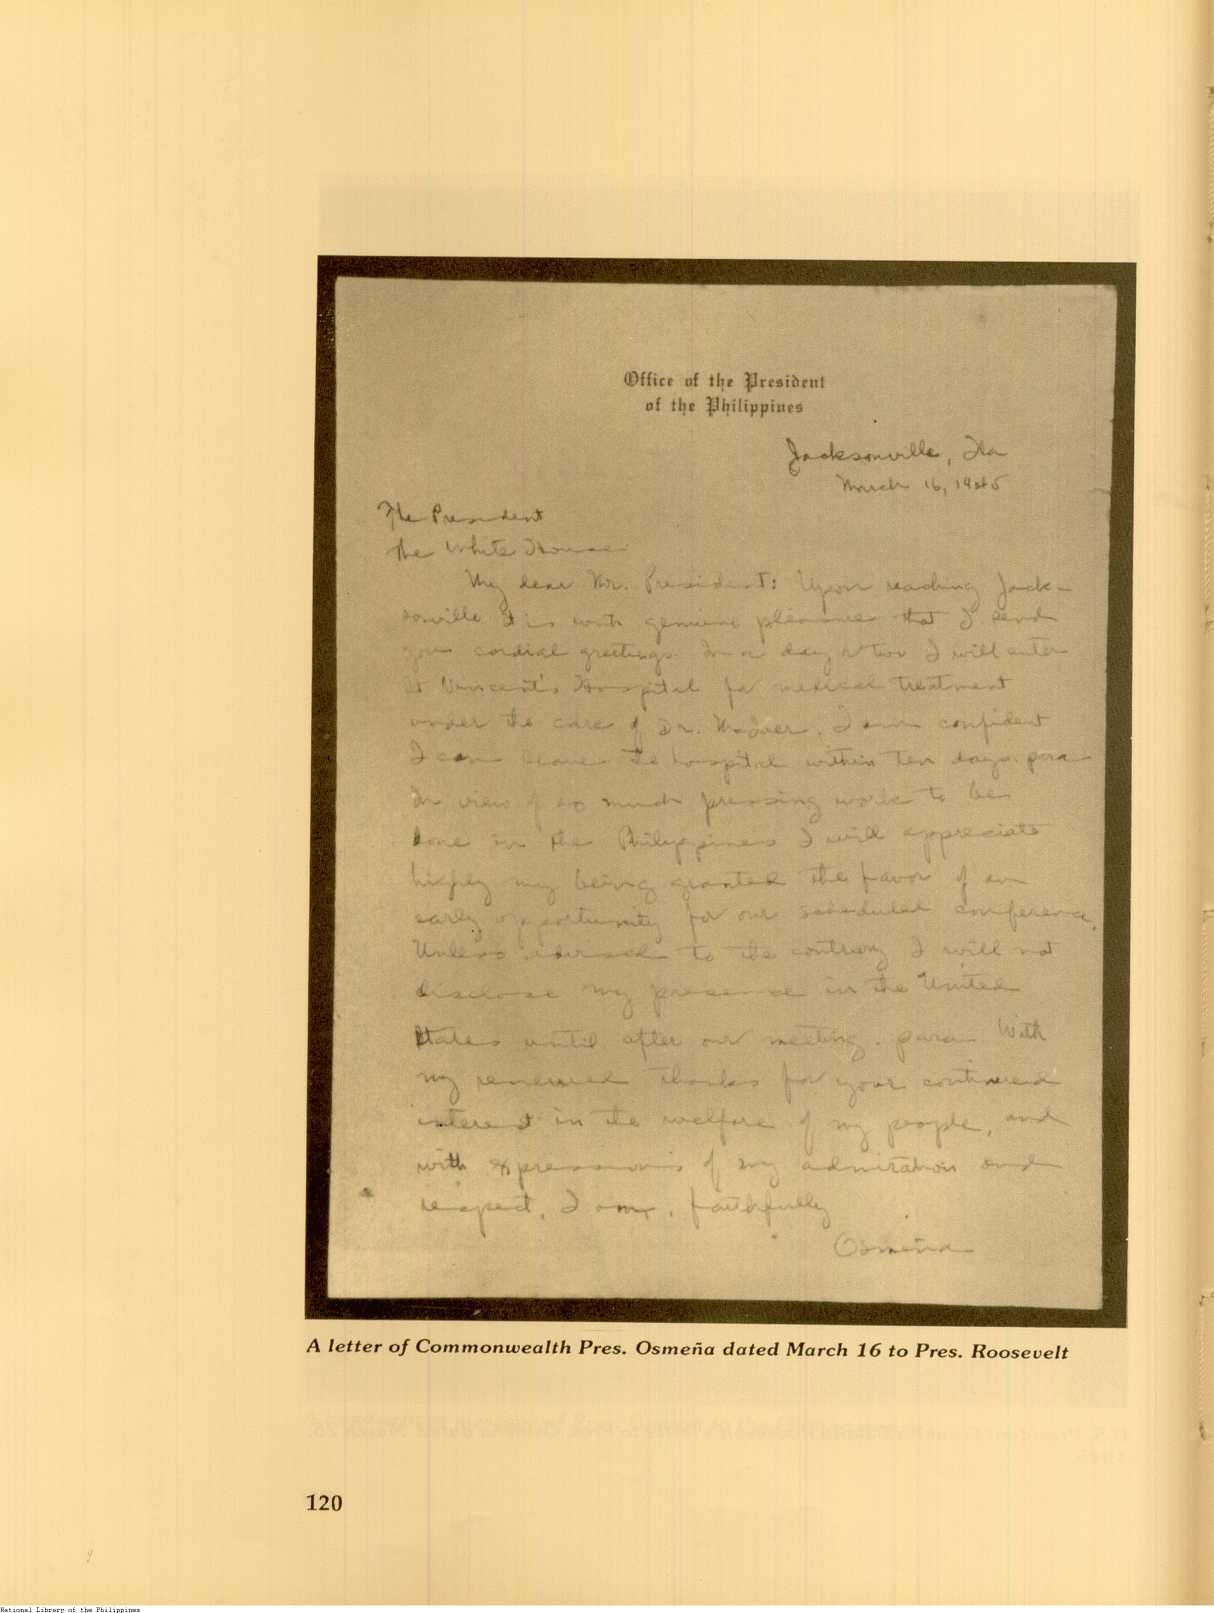 Office of the President
of the Philippines
Jacksonville, Fla
March 16, 1945
The President
The White House
My dear Mr. President: Upon reaching Jack-
sonville it is with genuine pleasure that I send
you cordial greetings. In a day or two I will enter
St Vincent's Hospital for medical treatment
under the care of Dr. McIver. I am confident
I can leave the hospital within ten days. para
In view of so much pressing work to be
done in the Philippines I will appreciate
highly my being granted the favor of an
early opportunity for our scheduled conference.
Unless advised to the contrary I will not
disclose my presence in the United
States until after our meeting. para With
my renewed thanks for your continued
interest in the welfare of my people, and
with expressions of my admiration and
respect, I am, faithfully
Osmeña
A letter of Commonwealth Pres. Osmeña dated March 16 to Pres. Roosevelt
120
National Library of the Philippines